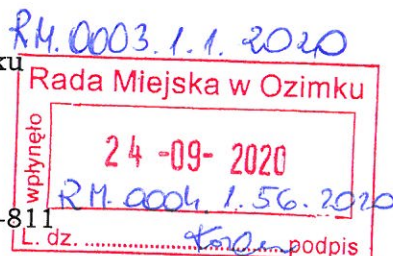 RM. 0003.1.1. 2020
ku
Rada Miejska w Ozimku
wpłynęło
24 -09- 2020
RM. 0004. 1. 56. 2020
-811
L. dz. ........................ podpis